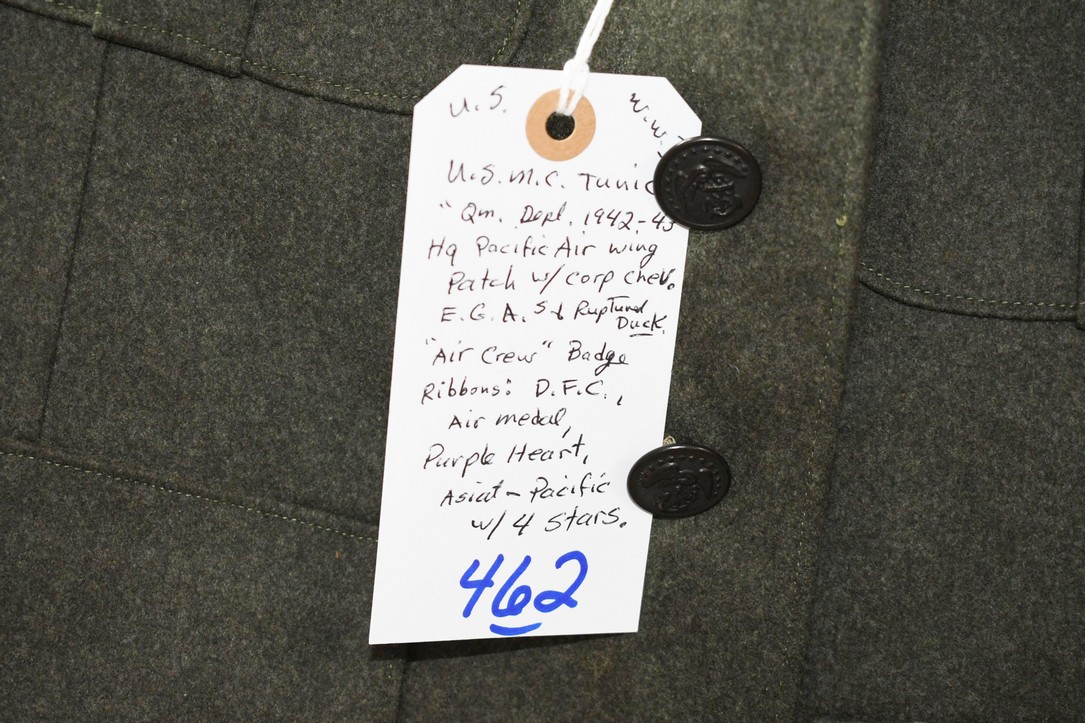 U.S.
W.W.
U.S.M.C. Tunic
"Qm. Depl. 1942-43
Hq Pacific Air wing
Patch w/ corp chev.
E.G.A.s & Ruptured
Duck.
"Air Crew" Badge
Ribbons: D.F.C.,
Air medal,
Purple Heart,
Asiat-Pacific
w/ 4 stars.
462